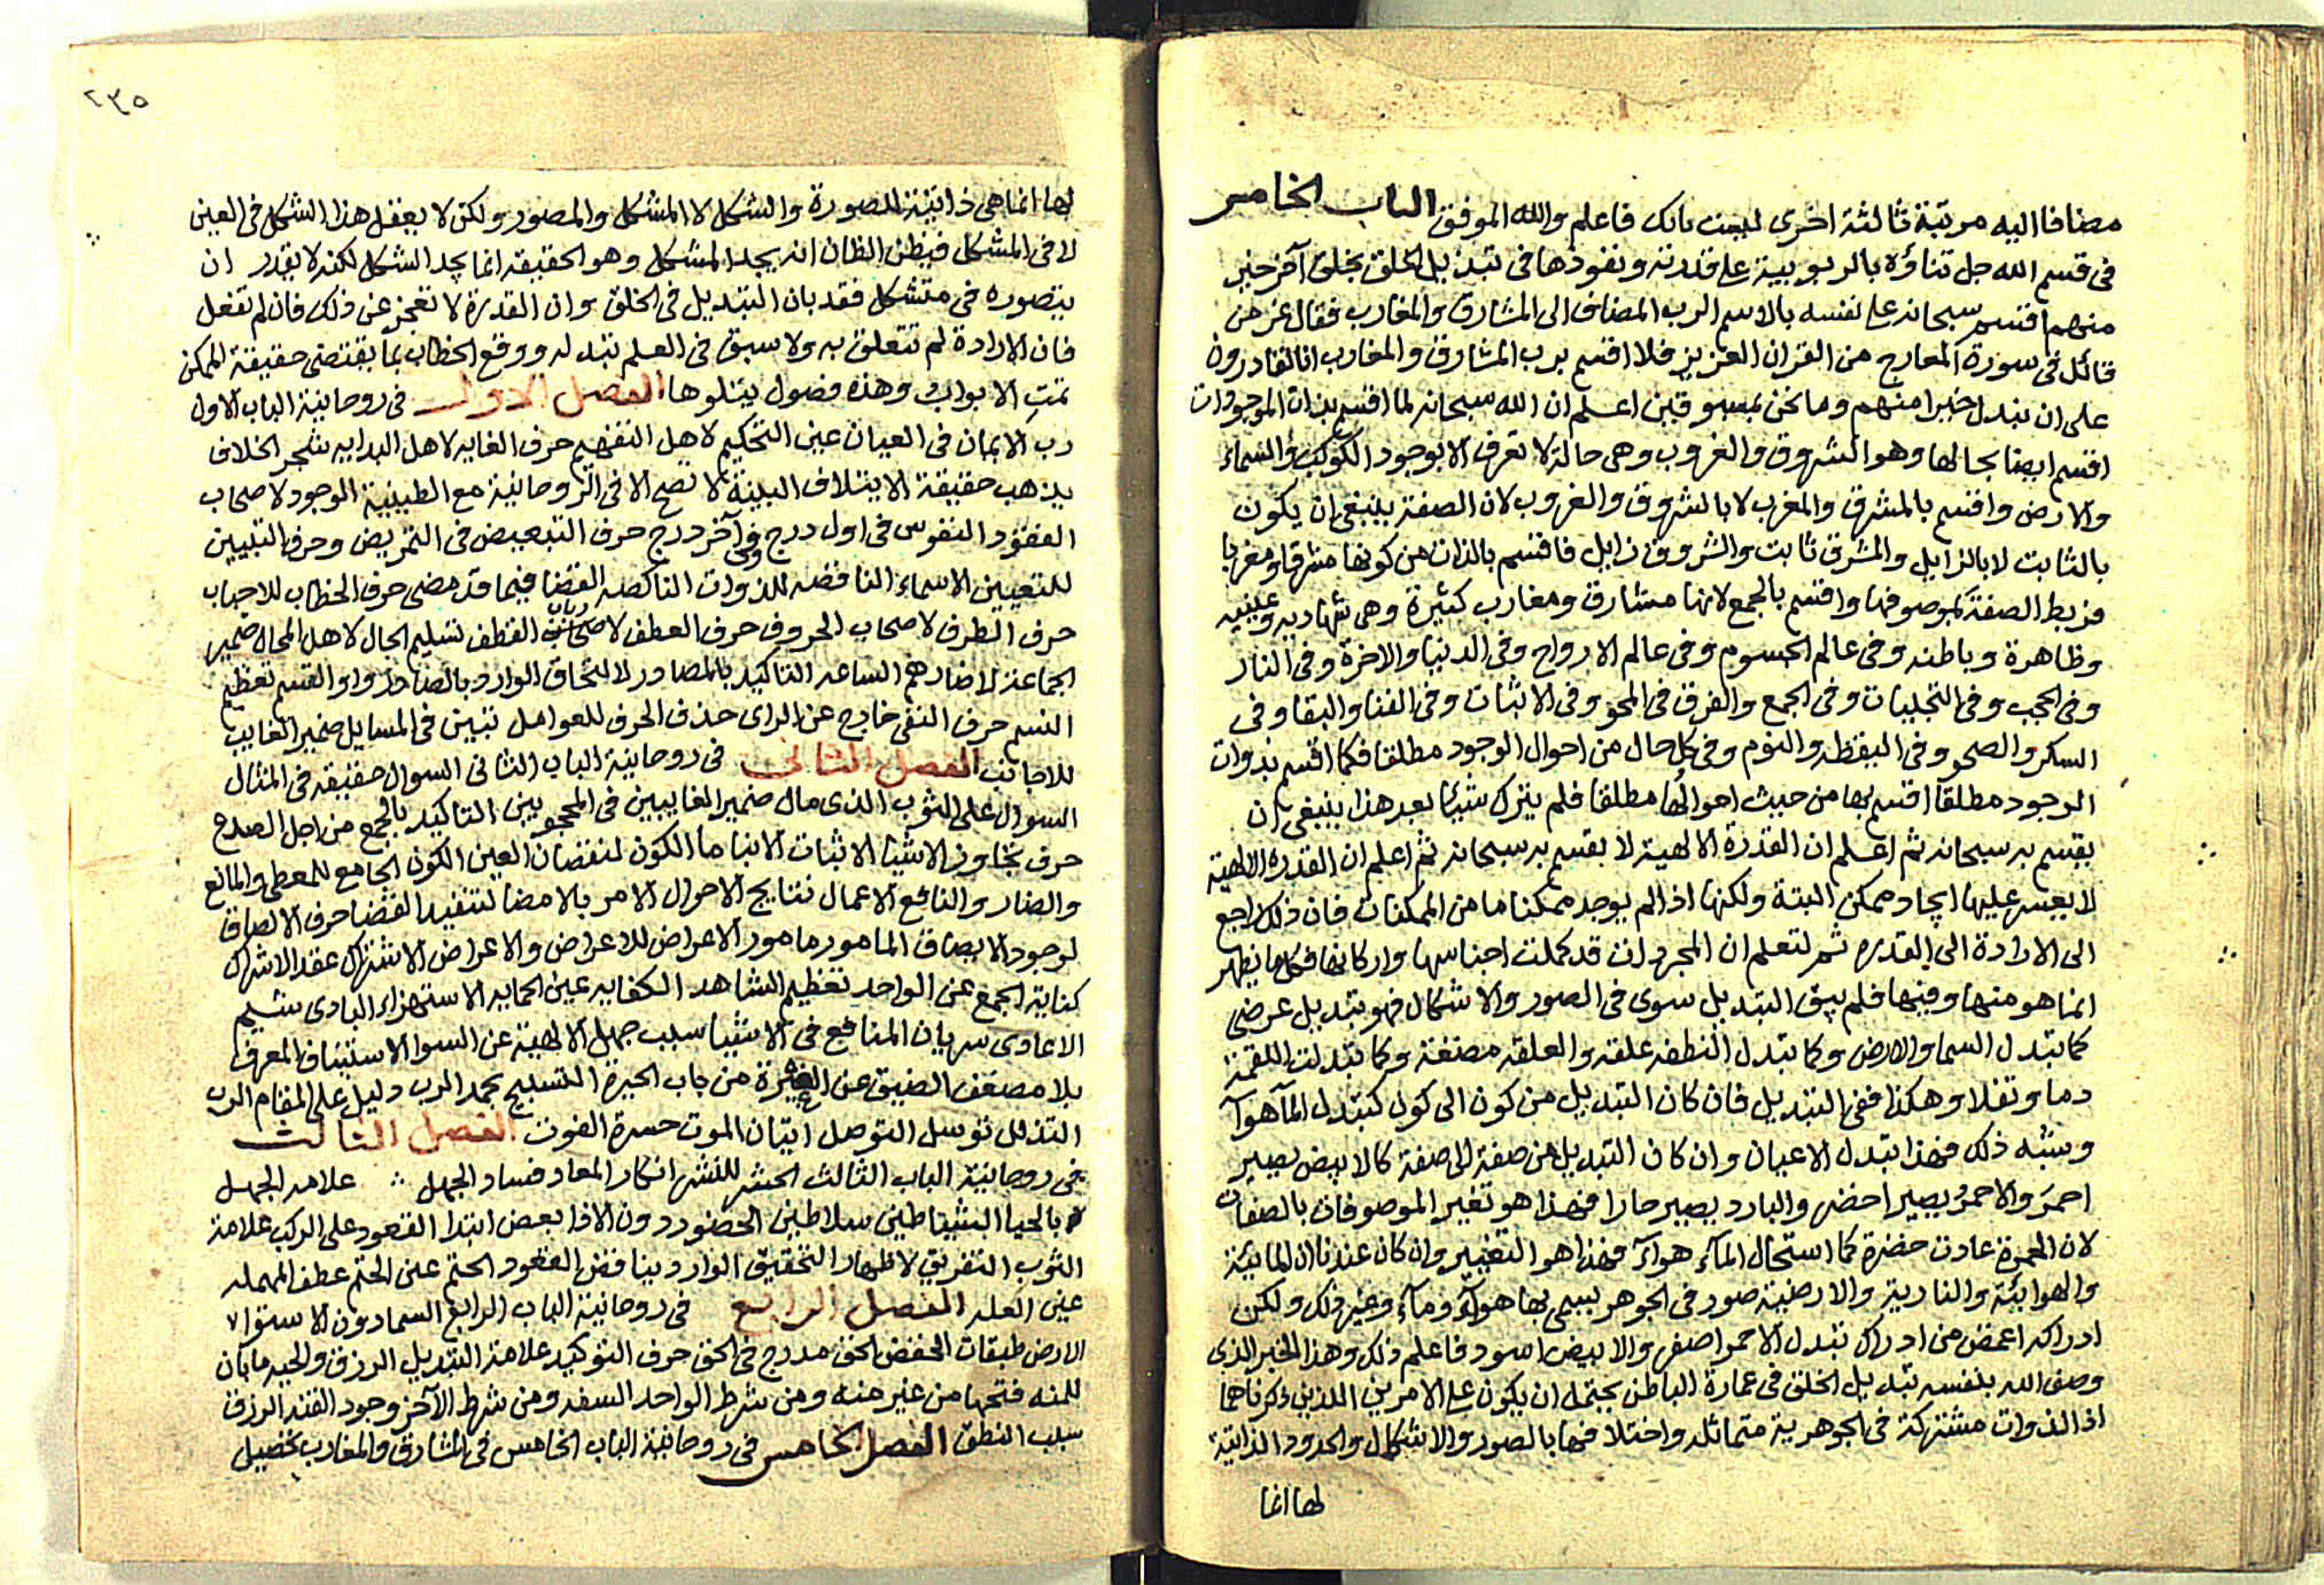 مضافا اليه مرتبة ثالثة اخرى لبينت بانك فاعلم والله الموفق الباب الخامس
فى قسم الله جل ثناؤه بالربوبية على قدرته ونفوذها فى تبديل الخلق بخلق آخر خير
منهم اقسم سبحانه على نفسه بالاسم الرب المضاف الى المشارق والمغارب فقال عز من
قائل فى سورة المعارج من القران العزيز فلا اقسم برب المشارق والمغارب انا لقادرون
على ان نبدل خيرا منهم وما نحن بمسبوقين اعلم ان الله سبحانه لما اقسم بذات الموجودات
اقسم ايضا بحالها وهو الشروق والغروب وهى حالة لا تعرف الا بوجود الكوكب والسماء
والارض واقسم بالمشرق والمغرب لا بالشروق والغروب لان الصفة ينبغى ان يكون
بالثابت لا بالزايل والمشرق ثابت والشروق زايل فاقسم بالذات من كونها مشرقا ومغربا
فربط الصفة بموصوفها واقسم بالجمع لانها مشارق ومغارب كثيرة وهى شهاديه وغيبيه
وظاهرة وباطنه وفى عالم الجسوم وفى عالم الارواح وفى الدنيا والاخرة وفى النار
وفى الحجب وفى التجليات وفى الجمع والفرق فى المحو وفى الاثبات وفى الفنا والبقا وفى
السكر والصحو وفى اليقظه والنوم وفى كل حال من احوال الوجود مطلقا فكما اقسم بذوات
الوجود مطلقا اقسم بها من حيث احوالها مطلقا فلم يترك شيئا بعد هذا ينبغى ان
يقسم به سبحانه ثم اعلم ان القدرة الالهية لا يقسم به سبحانه ثم اعلم ان القدره الالهية
لا يعسر عليها ايجاد ممكن البتة ولكنها اذا لم يوجد ممكنا ما من الممكنات فان ذلك راجع
الى الارادة الى القدره ثم لتعلم ان المجردات قد كملت اجناسها واركانها فكل ما يظهر
انما هو منها وفيها فلم يبق التبديل سوى فى الصور والاشكال فهو تبديل عرضى
كما تبدل السما والارض وكما تبدل النطفه علقه والعلقه مضغة وكما تبدلت اللقمة
دما وثفلا وهكذا ففى التبديل فان كان التبديل من كون الى كون كتبدل المآ هوآ
وشبه ذلك فهذا تبدل الاعيان وان كان التبديل من صفة الى صفة كالابيض يصير
احمر والاحمر يصير اخضر والبارد يصير حارا فهذا هو تغير الموصوفات بالصفات
لان الحمرة عادت خضرة كما استحال المآء هوآء فهذا هو التغيير وان كان عندنا ان المائية
والهوائية والنارية والارضية صور فى الجوهر يسمى بها هوآء ومآء وغير ذلك ولكن
ادراكه اغمض من ادراك تبدل الاحمر اصفر والابيض اسود فاعلم ذلك وهذا الخبر الذى
وصف الله بنفسه تبديل الخلق فى عمارة الباطن يحتمله ان يكون على الامرين اللذين ذكرناهما
اذ الذوات مشتركة فى الجوهرية متماثله واختلافها بالصور والاشكال والحدود الذاتية
لها انما
٢٣٥
لها انما هى ذاتية للصورة والشكل لا المشكل والمصور ولكن لا يعقل هذا الشكل فى العين
الا فى المشكل فيظن الظان انه يحد المشكل وهو الحقيقه انما يحد الشكل لكنه لا يقدر ان
يتصوره فى متشكل فقد بان التبديل فى الخلق وان القدرة لا تعجز عن ذلك فان لم تفعل
فان الارادة لم تتعلق به ولا سبق فى العلم تبدله ووقع الخطاب بما يقتضى حقيقة الممكن
تمت الابواب وهذه فصول يتلوها الفصل الاول فى روحانية الباب الاول
رب الايمان فى العيان عين التحكيم لاهل التفهيم حرف الغايه لاهل البدايه شجر الخلاف
يذهب حقيقة الايتلاف البينة لا تصح الا فى الروحانية مع الطبيعية الوجود لاصحاب
العقود النفوس فى اول درج وفى آخر درج حرف التبعيض فى التمريض وحرف التبيين
للتعيين الاسماء الناقصه للذوات الناكصه القضا فيما قد مضى حرف الخطاب للاحباب
حرف الظرف لاصحاب الحروف حرف العطف لاصحاب القطف تسليم الحال لاهل المحال ضمير
الجماعة التاكيد بالمصادر لالتحاق الوارد بالصادر واو القسم تعظيم
النسم حرف النفى خارج عن الراى حذف الحرف للعوامل تبيين فى المسايل ضمير الغايب
للاجانب الفصل الثانى فى روحانية الباب الثانى السوال حقيقه فى المثال
السوال على الثوب الذى مال ضمير الغايبين فى المحجوبين التاكيد بالجمع من اجل الصدع
حرف تجاوز الاشيا لاثبات الانبا ما الكون لنقصان العين الكون الجامع للمعطى والمانع
والضار والنافع الاعمال نتايج الاحوال الامر بالامضا لتنفيد القضا حرف الالصاق
لوجود الابصاق المامور مامور الاعراض للاعراض والاعراض الاشتراك عقد الاشراك
كناية الجمع عن الواحد تعظيم الشاهد الكفايه عين الحمايه الاستهزاء البادى شيم
الاعادى سريان المنافع فى الاشيا سبب جهل الالهية عن السوا الاستيناف المعرف
بلا مصغف الضيق عن الغيرة من باب الحيرة التسبيح بحمد الرب دليل على المقام الرب
التذلل توسل التوصل اتيان الموت حسرة الفوت الفصل الثالث
فى روحانية الباب الثالث الحشر للنشر انكار المعاد فساد الجهل علامه الجهل
بالحيا الشياطين سلاطين الحضور دون الاذا بعض ابتدا القعود على الركب علامة
الثوب التفريق لاظهار التحقيق الوارد يناقض العقود الحتم عين الختم عطف المهمله
عين العله الفصل الرابع فى روحانية الباب الرابع السما دون الاستوا
الارض طبقات الخفض الحق مدرج فى الحق حرف التوكيد علامة التبديل الرزق والحيه مابان
للمنه فتحها من غير منه ومن شرط الواحد السفه ومن شرط الآخر وجود الفتنه الرزق
سلب النطق الفصل الخامس فى روحانية الباب الخامس فى المشارق والمغارب تحصيل